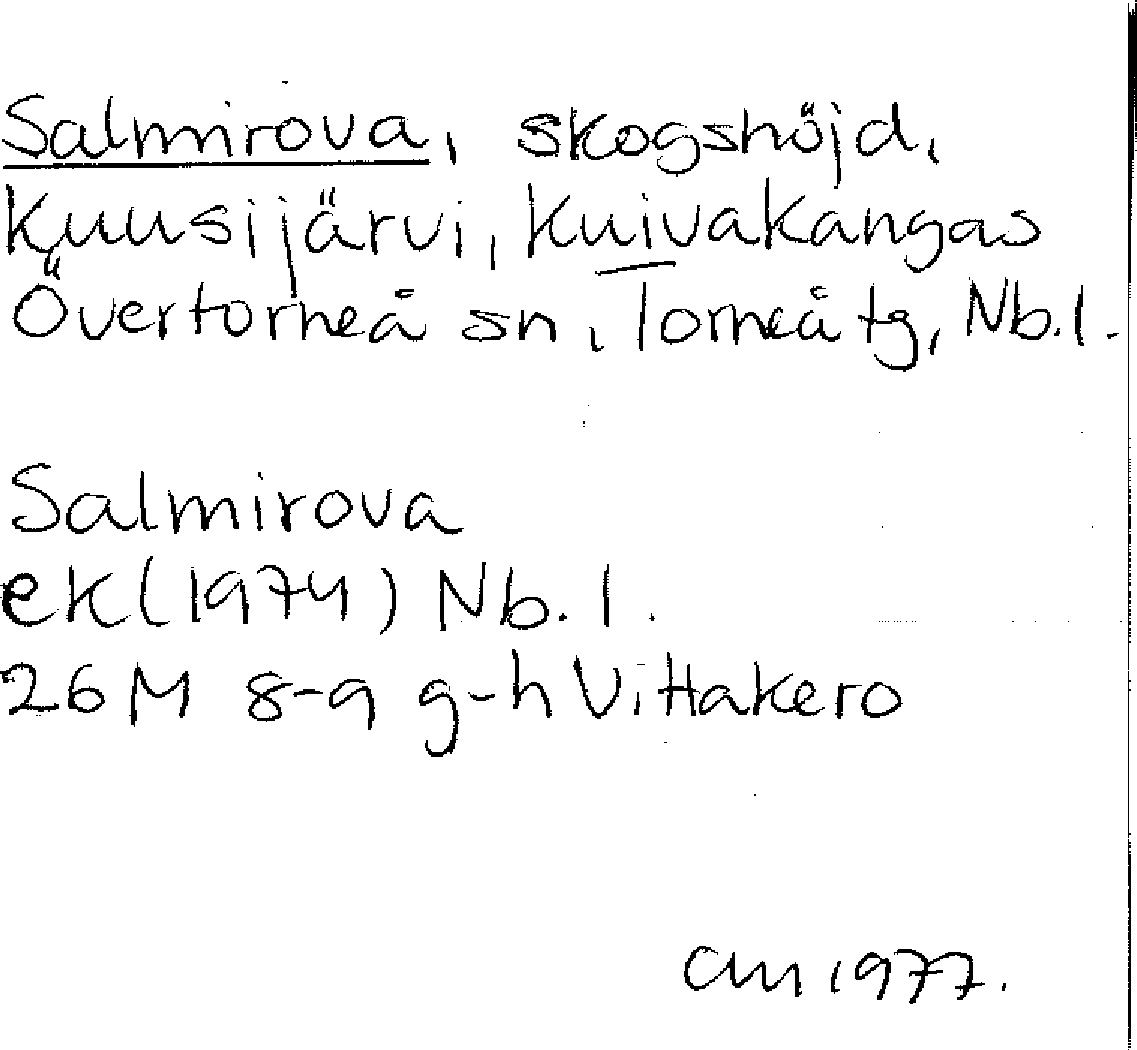 Salmirova, skogshöjd,
Kuusijärvi, Kuivakangas
Övertorneå sn, Torneå tg, Nb.l.
Salmirova
ek(1974) Nb.l.
26M 8-9 g-h Vittakero
CM 1977.